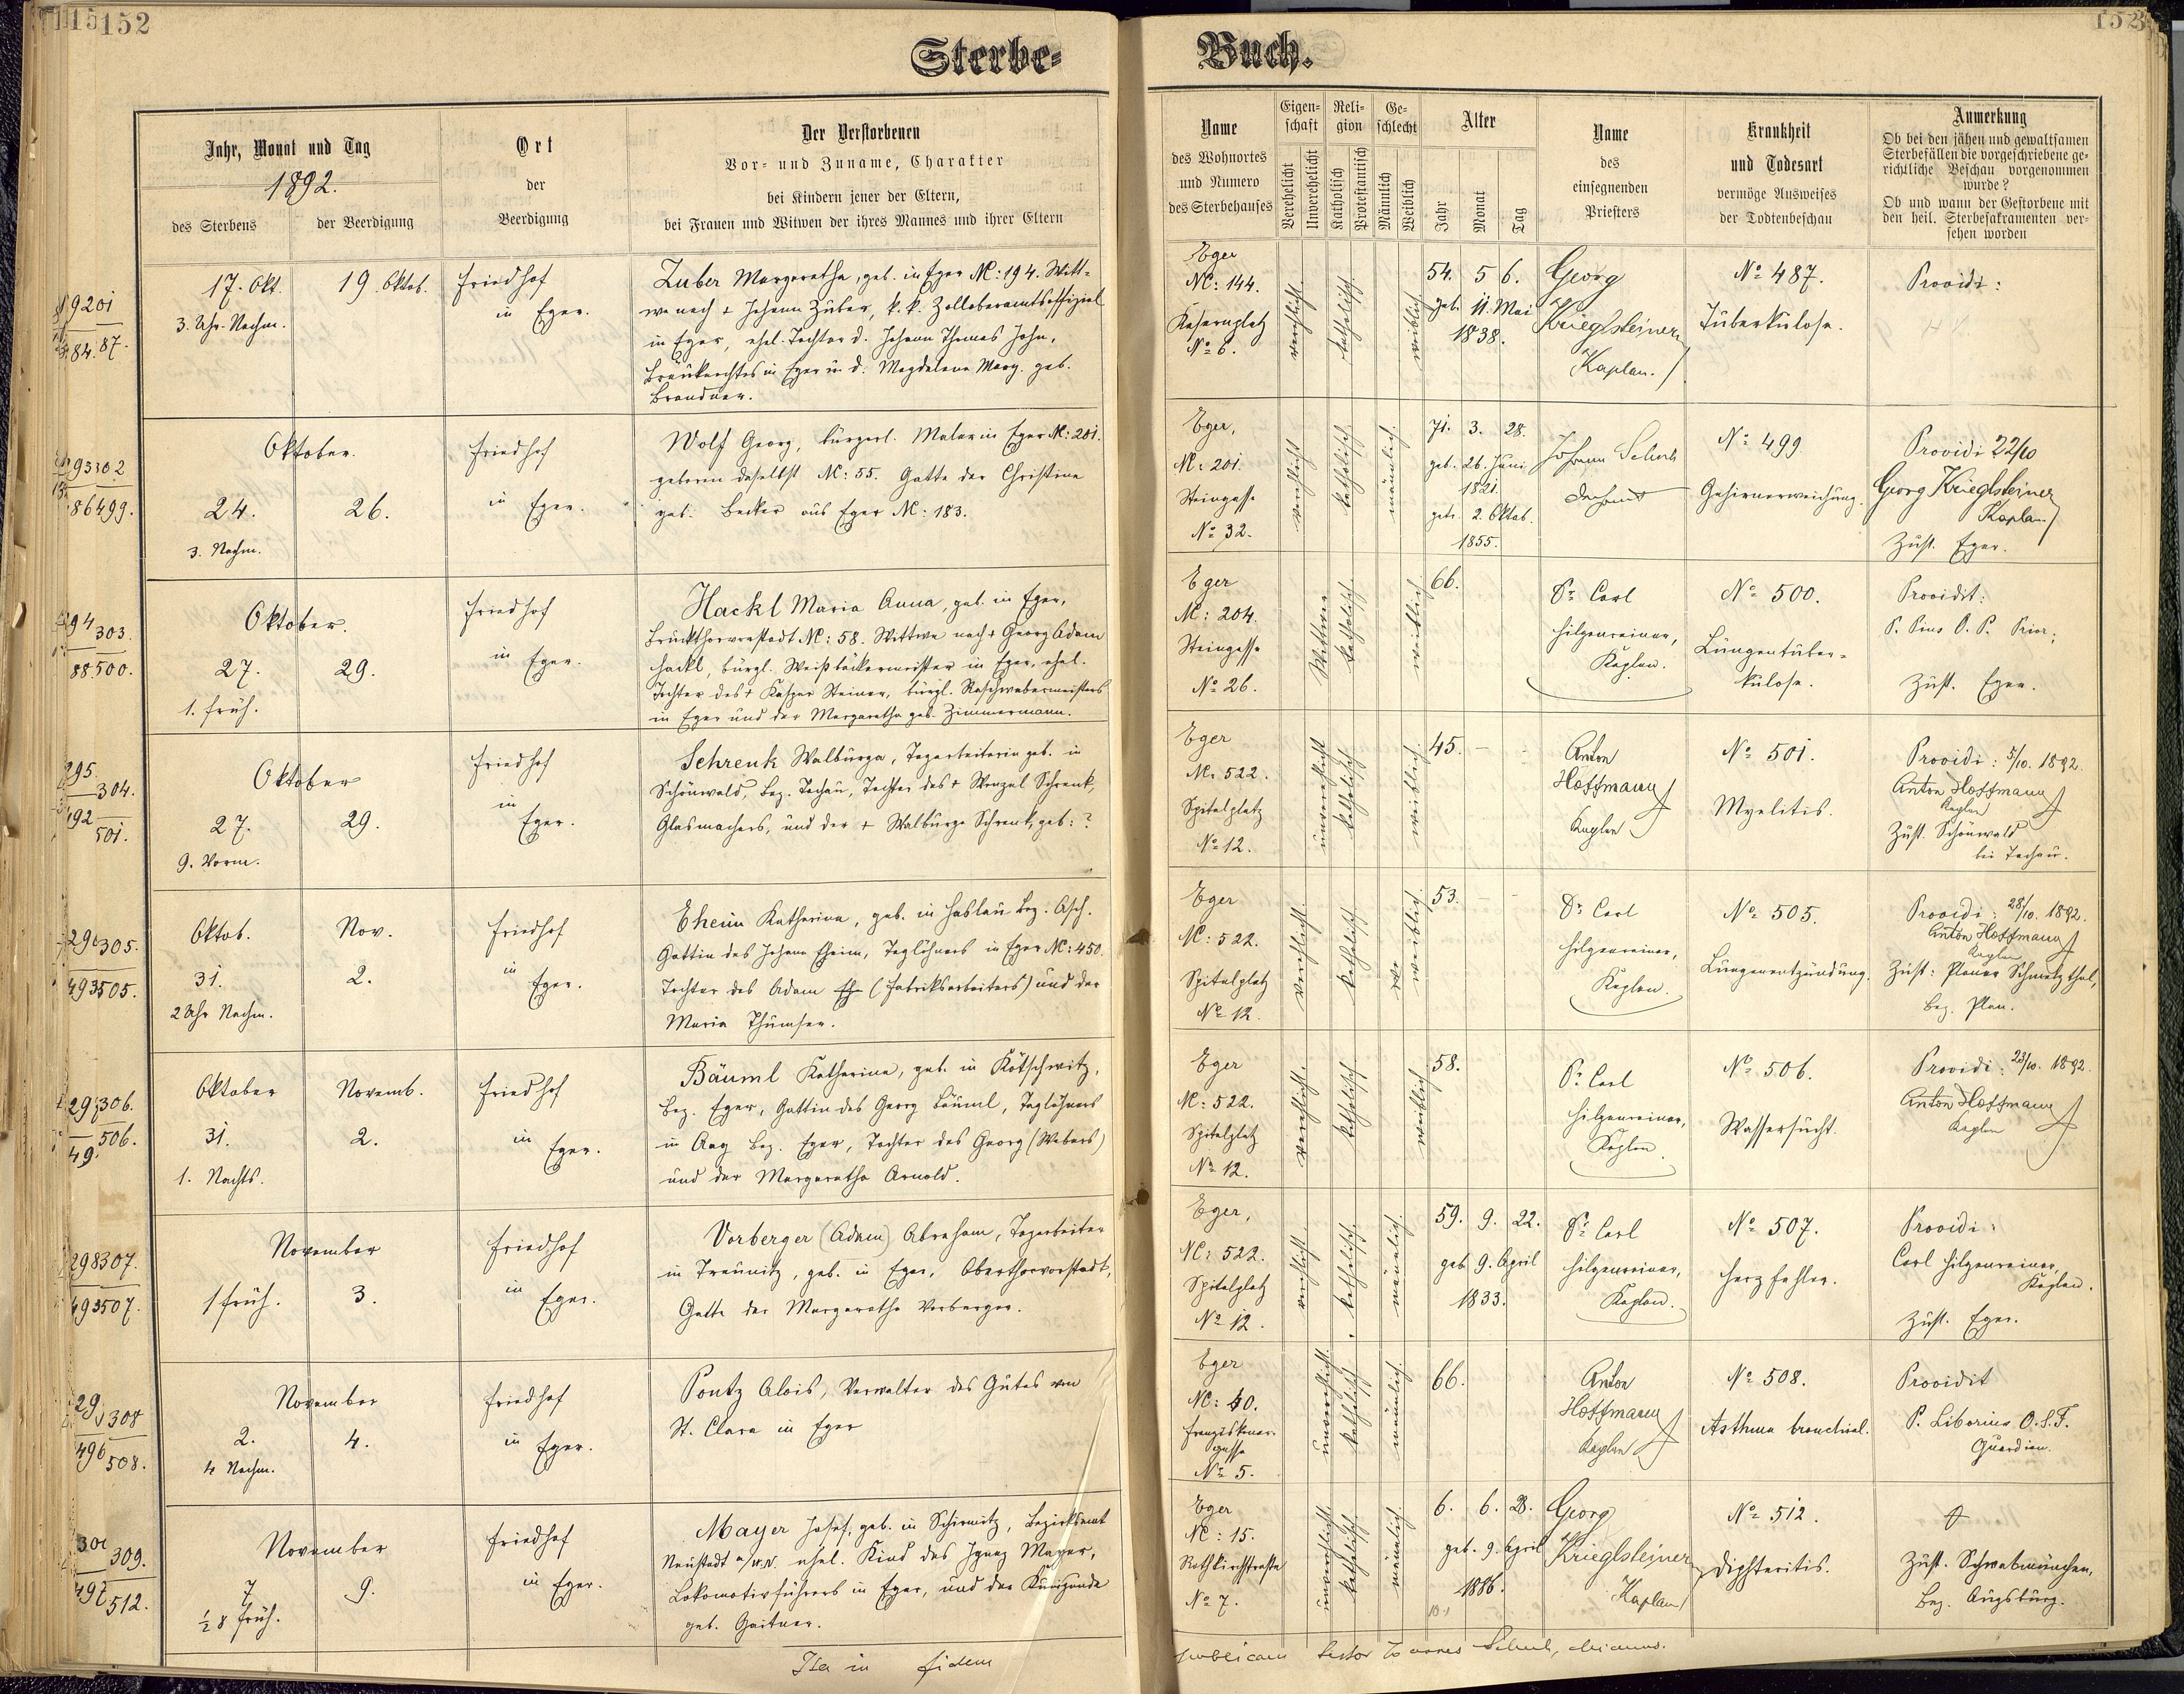 152
153
Sterbe-
Buch.
Jahr, Monat und Tag
1892.
des Sterbens
der Beerdigung
Ort
der
Beerdigung
Der Verstorbenen
Vor- und Zuname, Charakter
bei Kindern jener der Eltern,
bei Frauen und Witwen der ihres Mannes und ihrer Eltern
Name
des Wohnortes
und Numero
des Sterbehauses
Eigen-
schaft
Verehelicht
Unverehelicht
Reli-
gion
Katholisch
Protestantisch
Ge-
schlecht
Männlich
Weiblich
Alter
Jahr
Monat
Tag
Name
des
einsegnenden
Priesters
Krankheit
und Todesart
vermöge Ausweises
der Todtenbeschau
Anmerkung
Ob bei den jähen und gewaltsamen
Sterbefällen die vorgeschriebene ge-
richtliche Beschau vorgenommen
wurde?
Ob und wann der Gestorbene mit
den heil. Sterbesakramenten ver-
sehen worden
17. Okt.
3. Uhr. Nachm.
19. Oktob.
Friedhof
in Eger.
Zuber Margaretha, geb. in Eger NC: 194. Witt-
we nach + Johann Zuber, k. k. Zolloberamtsoffizial
in Eger, ehel. Tochter d. Johann Thomas John,
Bräuknechtes in Eger u. d. Magdalena Marg. geb.
Brandner.
Eger
NC: 144.
Kasernplatz
No 6.
verehlicht.
katholisch.
weiblich
54. 5 6.
geb. 11. Mai
1838.
Georg
Krieglsteiner
Kaplan.
No 487.
Tuberkulose.
Providi:
Oktober.
24.
3. Nachm.
26.
Friedhof
in Eger.
Wolf Georg, bürgerl. Maler in Eger NC: 201.
geboren daselbst NC: 55. Gatte der Christina
geb. Becker aus Eger NC: 183.
Eger,
NC: 201.
Steingasse
No 32.
verehlicht
katholisch
männlich.
71. 3. 28.
geb. 26. Juni
1821.
getr. 2. Oktob.
1855.
Johann Schuh
Dechant
No 499
Gehirnerweichung.
Providi 22/10
Georg Krieglsteiner
Kaplan
Zust. Eger.
Oktober.
27.
1. früh.
29.
Friedhof
in Eger.
Hackl Maria Anna, geb. in Eger,
Bruckthorvorstadt NC: 58. Wittwe nach + Georg Adam
Hackl, bürgl. Weißbäckermeister in Eger, ehel.
Tochter des + Kaspar Steiner, bürgl. Raschwebermeisters
in Eger und der Margaretha geb. Zimmermann.
Eger
NC: 204.
Steingasse
No 26.
Wittwe
katholisch.
weiblich.
66.
Dr. Carl
Hilgenreiner,
Kaplan.
No 500.
Lungentuber-
kulose.
Providit:
P. Pius O. P. Prior.
Zust. Eger.
Oktober
27.
9. Vorm.
29.
Friedhof
in
Eger.
Schrenk Walburga, Tagarbeiterin geb. in
Schönwald, Bez. Tachau, Tochter des + Wenzel Schrenk,
Glasmachers, und der + Walburga Schrenk, geb: ?
Eger
NC: 522.
Spitalplatz
No 12.
unverehlicht
katholisch
weiblich.
45.
Anton
Hoffmann
Kaplan
No 501.
Myelitis.
Providi: 5/10. 1892.
Anton Hoffmann
Kaplan
Zust. Schönwald
bei Tachau.
Oktob.
31.
2 Uhr Nachm.
Nov.
2.
Friedhof
in
Eger.
Eheim Katharina, geb. in Haslau Bez. Asch.
Gattin des Johann Eheim, Taglöhners in Eger NC: 450.
Tochter des Adam Eh (Fabriksarbeiters) und der
Maria Thumser.
Eger
NC: 522.
Spitalplatz
No 12.
verehlicht.
katholisch
weiblich.
53.
Dr. Carl
Hilgenreiner,
Kaplan.
No 505.
Lungenentzündung.
Providi: 28/10. 1892.
Anton Hoffmann
Kaplan
Zust: Planer Schmelzthal,
Bez. Plan.
Oktober
31.
1. Nachts.
Novemb.
2.
Friedhof
in
Eger.
Bäuml Katharina, geb. in Kötschwitz,
Bez. Eger, Gattin des Georg Bäuml, Taglöhners
in Aag Bez. Eger, Tochter des Georg (Webers)
und der Margaretha Arnold.
Eger
NC: 522.
Spitalplatz
No 12.
verehlicht.
katholisch
weiblich
58.
Dr. Carl
Hilgenreiner,
Kaplan.
No 506.
Wassersucht.
Providi: 23/10. 1892.
Anton Hoffmann
Kaplan
November
1 früh.
3.
Friedhof
in
Eger.
Vorberger (Adam) Abraham, Tagarbeiter
in Treunitz, geb. in Eger, Oberthorvorstadt,
Gatte der Margaretha Vorberger.
Eger,
NC: 522.
Spitalplatz
No 12.
verehlicht
katholisch
männlich.
59. 9. 22.
geb. 9. April
1833.
Dr. Carl
Hilgenreiner,
Kaplan.
No 507.
Herzfehler.
Providi:
Carl Hilgenreiner,
Kaplan.
Zust. Eger.
November
2.
4 Nachm.
4.
Friedhof
in Eger.
Pontz Alois, Verwalter des Gutes von
St. Clara in Eger
Eger
NC: 40.
Franziskaner-
gasse
No 5.
unverehlicht.
katholisch
männlich.
66.
Anton
Hoffmann
Kaplan
No 508.
Asthma bronchial.
Providit
P. Liborius O.S.F.
Guardian.
November
7
½ 8 früh.
9.
Friedhof
in Eger.
Mayer Josef, geb. in Schirmitz, Bezirksamt
Neustadt a/W.N. ehel. Kind des Ignaz Mayer,
Lokomotivführers in Eger, und der Kunigunde
geb. Gaitner.
Eger
NC: 15.
Rathkirchstrasse
No 7.
unverehlicht
katholisch
männlich.
6. 6. 28.
geb. 9. April
1886.
Georg
Krieglsteiner
Kaplan
No 512.
Diphteritis.
Zust. Schwabmünchen,
Bez. Augsburg.
Ita in fidem
publicam testor Joannes Schuh, decanus.